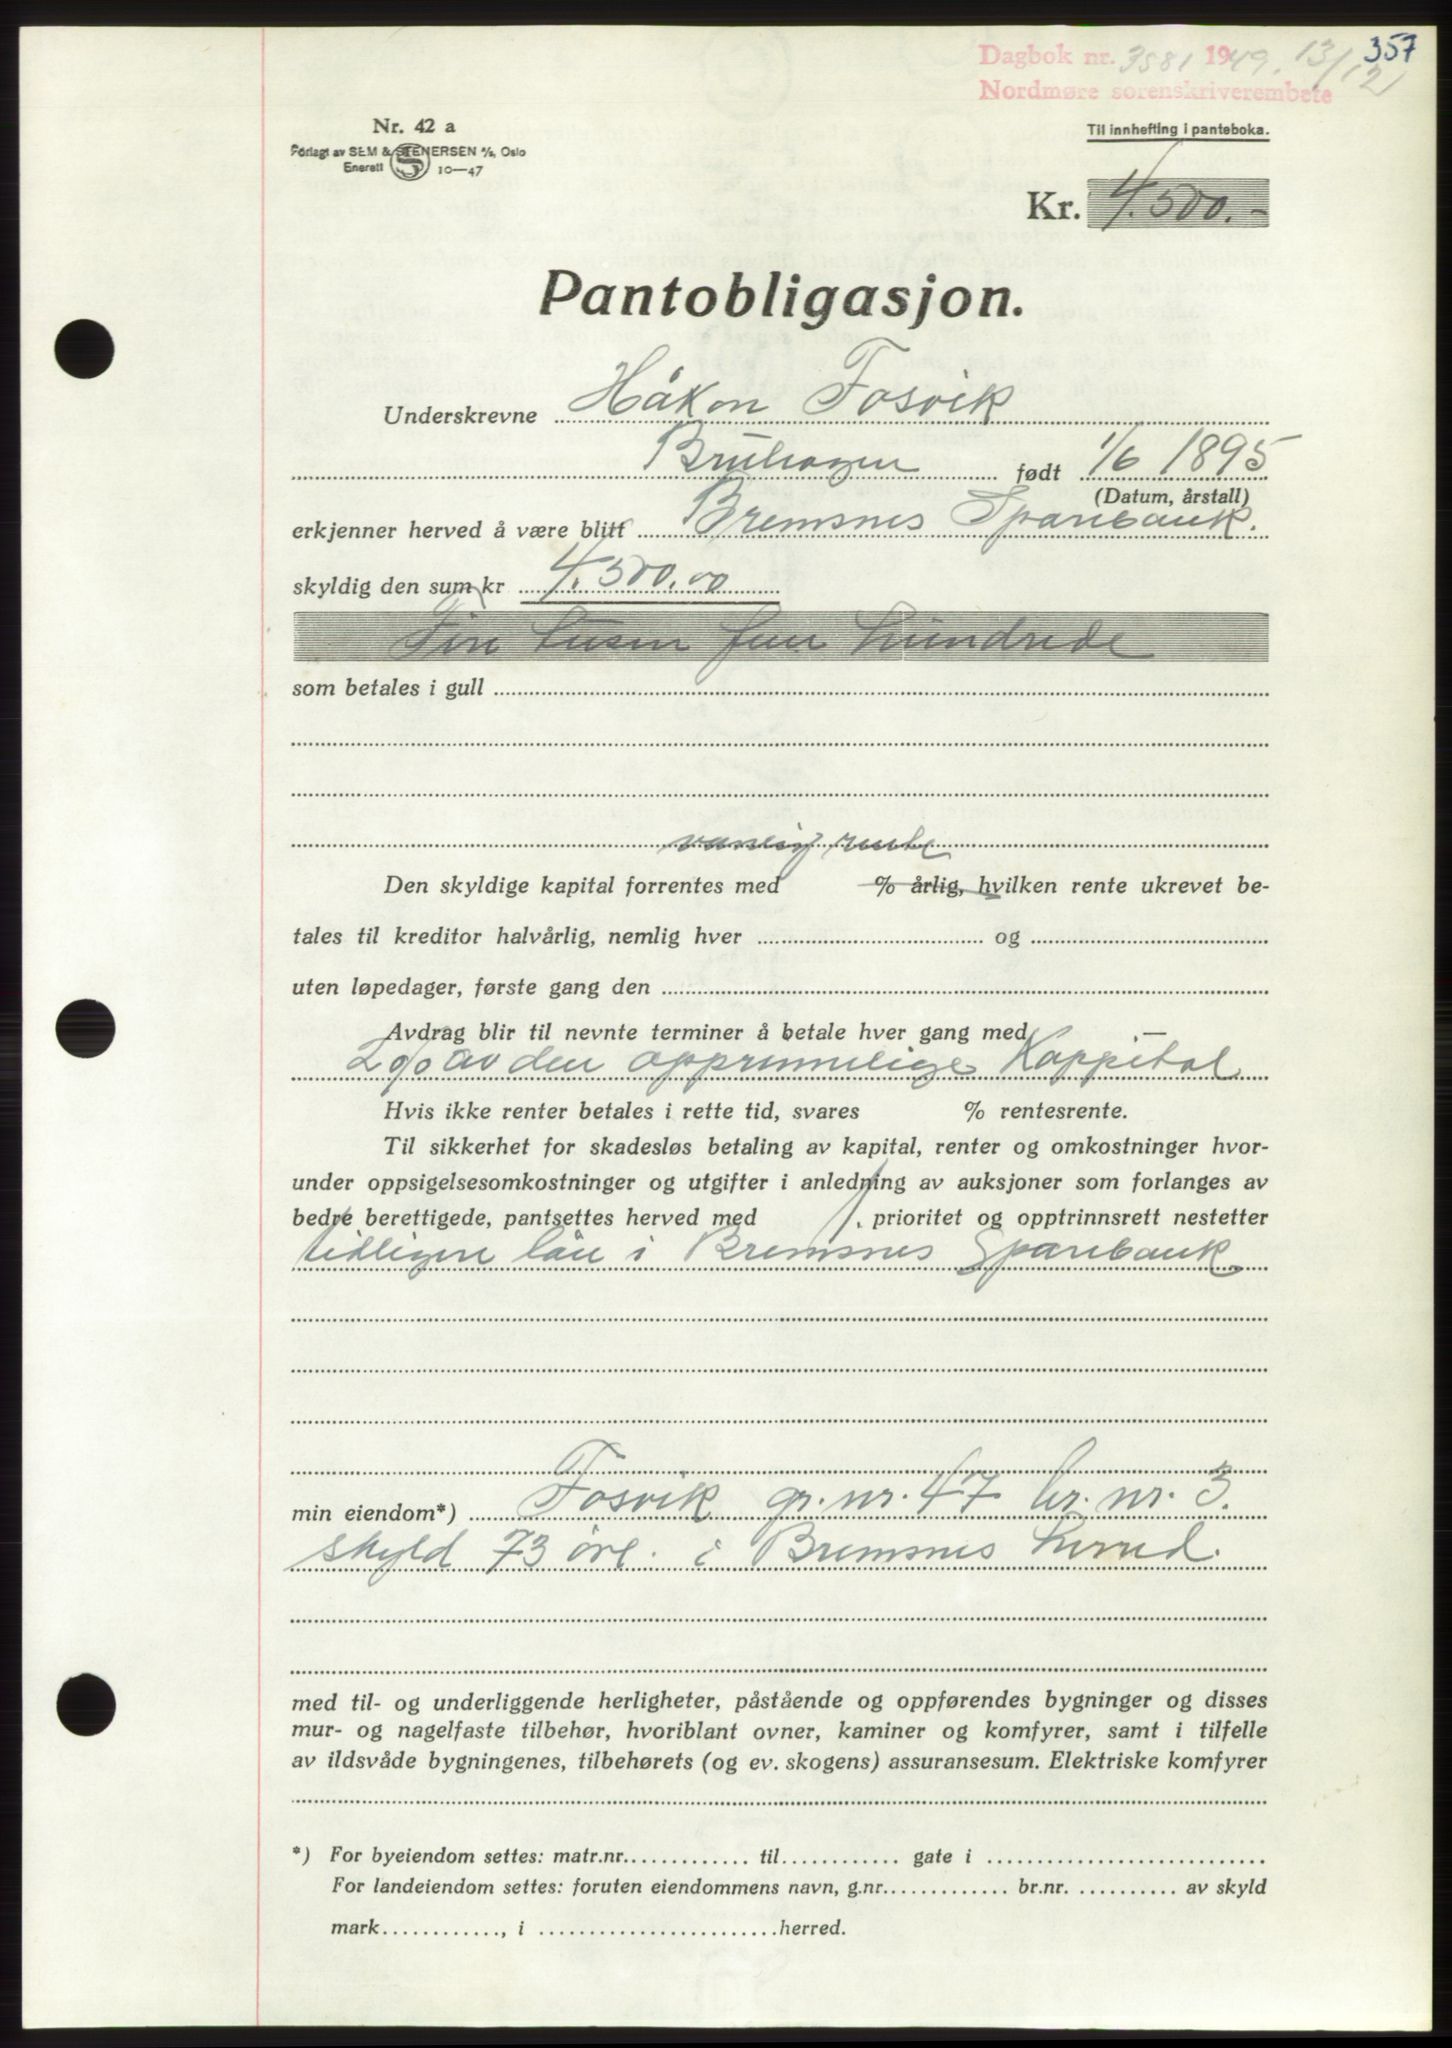 357
Dagbok nr. 3581 1949. 13/12
Nordmøre sorenskriverembete
Nr. 42 a
Forlagt av SEM & STENERSEN A/S, Oslo
Enerett 10—47
Til innhefting i panteboka.
Kr. 4.500.-
Pantobligasjon.
Underskrevne Håkon Fosvik
Bruhagen født 1/6 1895
(Datum, årstall)
erkjenner herved å være blitt Bremsnes Sparebank.
skyldig den sum kr 4.500.00
Fire tusen fem hundrede
som betales i gull
vanlig rente
Den skyldige kapital forrentes med % årlig, hvilken rente ukrevet be-
tales til kreditor halvårlig, nemlig hver og
uten løpedager, første gang den
Avdrag blir til nevnte terminer å betale hver gang med —
2% av den opprinnelige Kappital
Hvis ikke renter betales i rette tid, svares % rentesrente.
Til sikkerhet for skadesløs betaling av kapital, renter og omkostninger hvor-
under oppsigelsesomkostninger og utgifter i anledning av auksjoner som forlanges av
bedre berettigede, pantsettes herved med 1. prioritet og opptrinnsrett nestetter
tidligere lån i Bremsnes Sparebank
min eiendom*) Fosvik gr. nr. 47 br. nr. 3.
skyld 73 øre. i Bremsnes herred.
med til- og underliggende herligheter, påstående og oppførendes bygninger og disses
mur- og nagelfaste tilbehør, hvoriblant ovner, kaminer og komfyrer, samt i tilfelle
av ildsvåde bygningenes, tilbehørets (og ev. skogens) assuransesum. Elektriske komfyrer
*) For byeiendom settes: matr.nr. til gate i
For landeiendom settes: foruten eiendommens navn, g.nr. br.nr. av skyld
mark , i herred.